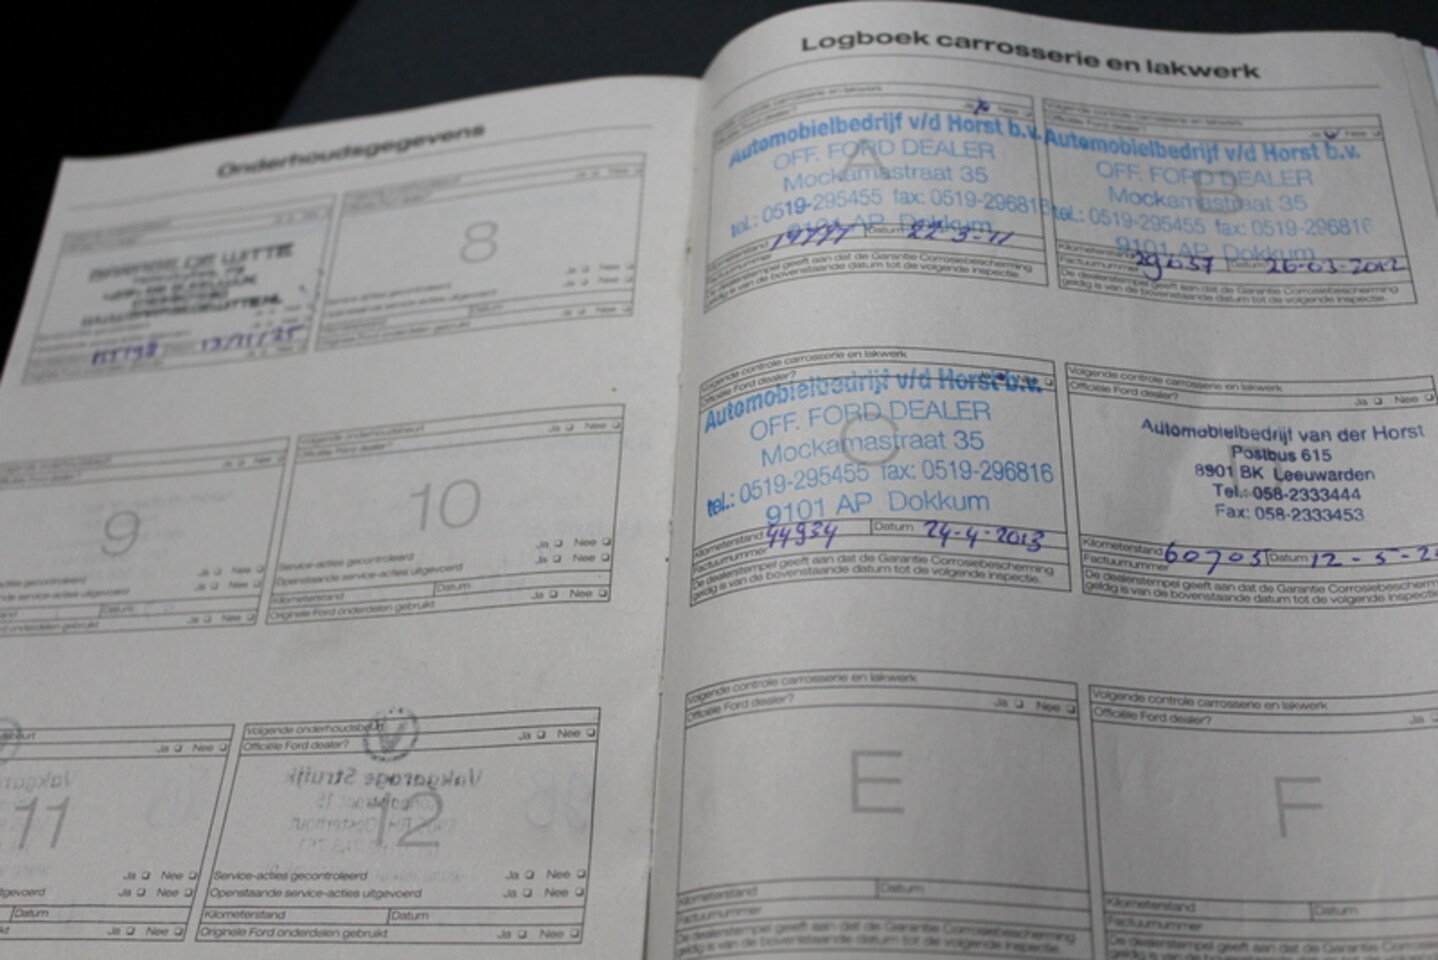 Onderhoudsgegevens
8
Ja Nee
Service-acties gecontroleerd
Datum
9
Ja Nee
Datum
Volgende onderhoudsbeurt
Officiële Ford dealer? Ja Nee
10
Service-acties gecontroleerd Ja Nee
Openstaande service-acties uitgevoerd Ja Nee
Kilometerstand Datum
Originele Ford onderdelen gebruikt Ja Nee
Ja Nee
11
Ja Nee
Ja Nee
Datum
Ja Nee
Volgende onderhoudsbeurt
Officiële Ford dealer? Ja Nee
12
Service-acties gecontroleerd Ja Nee
Openstaande service-acties uitgevoerd Ja Nee
Kilometerstand Datum
Originele Ford onderdelen gebruikt Ja Nee
Logboek carrosserie en lakwerk
Ja Nee
Automobielbedrijf v/d Horst b.v.
OFF. FORD DEALER
A
Mockamastraat 35
tel.: 0519-295455 fax: 0519-296816
9101 AP Dokkum
Kilometerstand Datum 22-3-11
De dealerstempel geeft aan dat de Garantie Corrosiebescherming
geldig is van bovenstaande datum tot de volgende inspectie.
Volgende controle carrosserie en lakwerk
Officiële Ford dealer? Ja Nee
Automobielbedrijf v/d Horst b.v.
OFF. FORD DEALER
B
Mockamastraat 35
tel.: 0519-295455 fax: 0519-296816
9101 AP Dokkum
Kilometerstand Datum 26-03-2012
Factuurnummer
De dealerstempel geeft aan dat de Garantie Corrosiebescherming
geldig is van bovenstaande datum tot de volgende inspectie.
Volgende controle carrosserie en lakwerk
Officiële Ford dealer?
Automobielbedrijf v/d Horst b.v.
OFF. FORD DEALER
C
Mockamastraat 35
tel.: 0519-295455 fax: 0519-296816
9101 AP Dokkum
Kilometerstand 44934 Datum 24-4-2013
Factuurnummer
De dealerstempel geeft aan dat de Garantie Corrosiebescherming
geldig is van bovenstaande datum tot de volgende inspectie.
Volgende controle carrosserie en lakwerk
Officiële Ford dealer? Ja Nee
Automobielbedrijf van der Horst
Postbus 615
8901 BK Leeuwarden
Tel.: 058-2333444
Fax: 058-2333453
Kilometerstand 60705 Datum 12-5-2
Factuurnummer
De dealerstempel geeft aan dat de Garantie Corrosiebescherm
geldig is van bovenstaande datum tot de volgende inspectie
Volgende controle carrosserie en lakwerk
Officiële Ford dealer? Ja Nee
E
Kilometerstand Datum
Factuurnummer
De dealerstempel geeft aan dat de Garantie Corrosiebescherming
geldig is van bovenstaande datum tot de volgende inspectie.
Volgende controle carrosserie en lakwerk
Officiële Ford dealer? Ja
F
Kilometerstand Datum
Factuurnummer
De dealerstempel geeft aan dat de Garantie Corrosiebesch